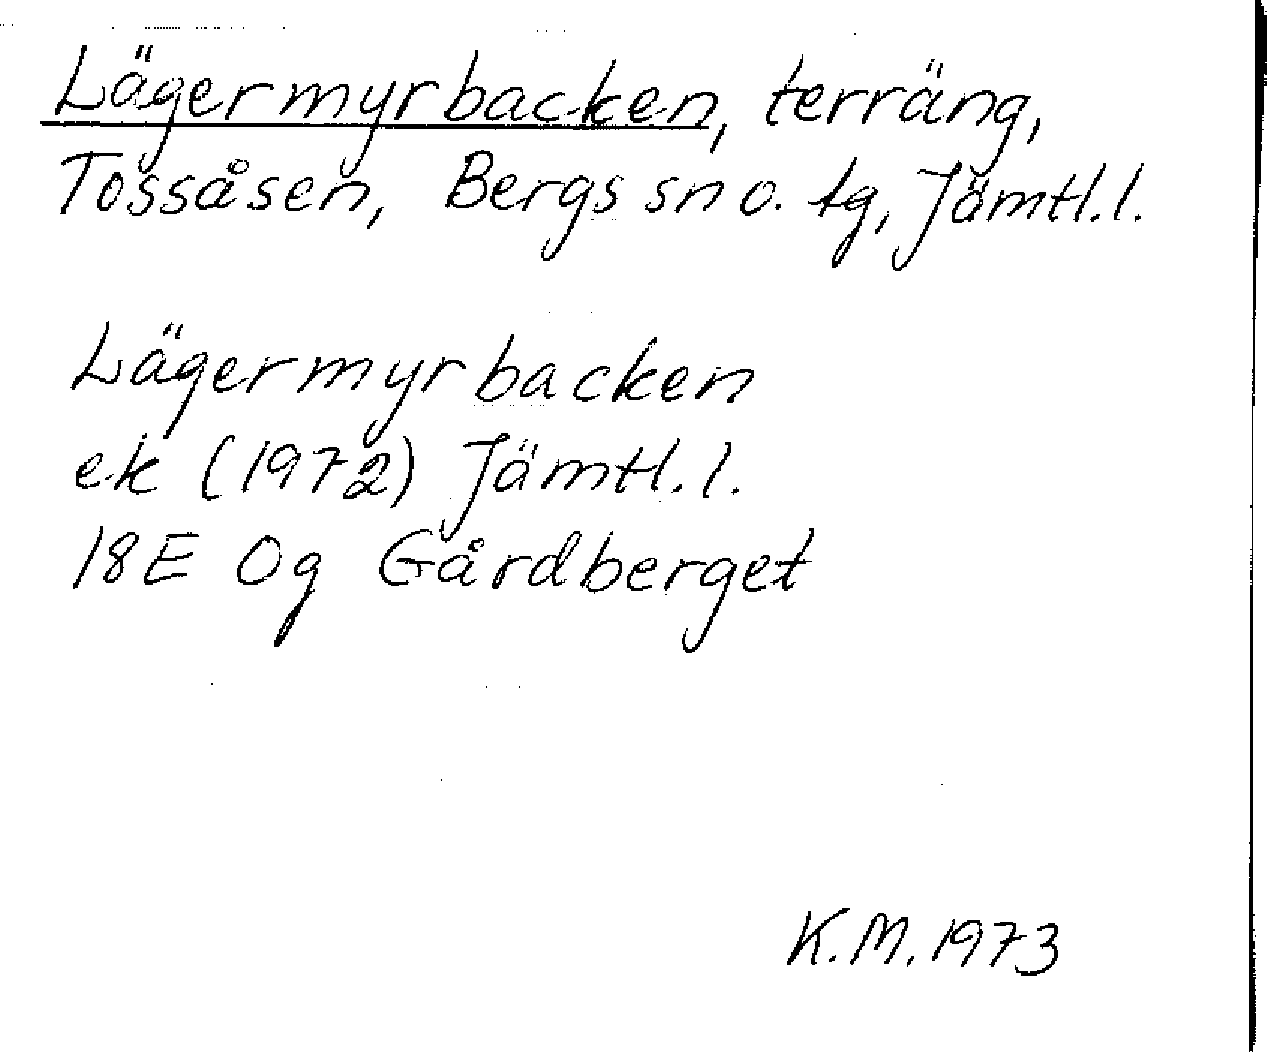 Lägermyrbacken, terräng,
Tossåsen, Bergs sn o. tg, Jämtl. l.
Lägermyrbacken
ek (1972) Jämtl. l.
18E 0g Gårdberget
K.M. 1973